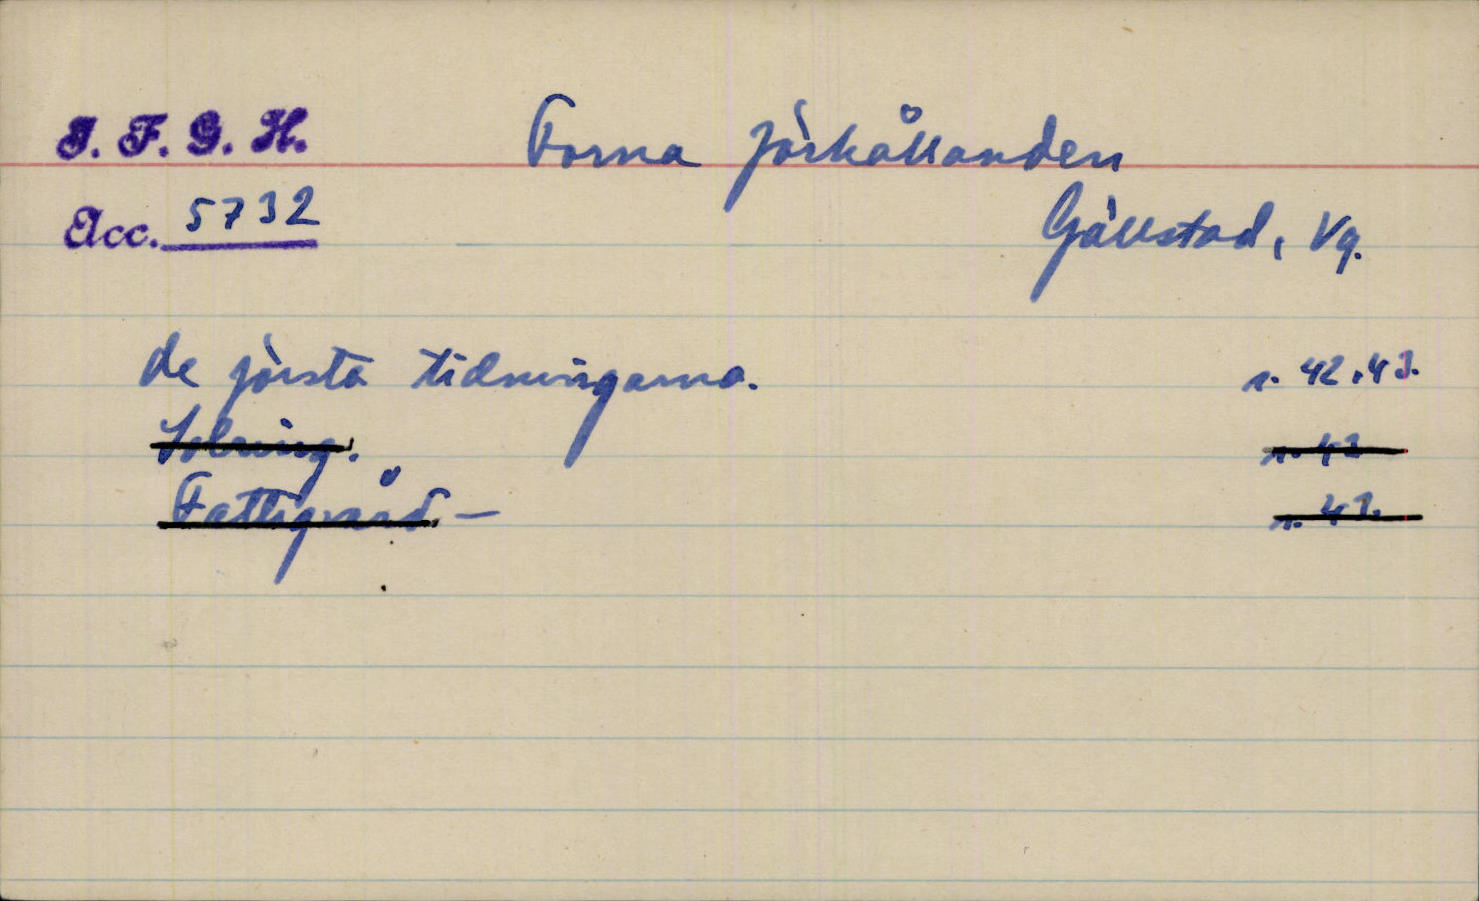 I. F. G. H.
Forna förhållanden
Acc. 5732
Gällstad, Vg.
de första tidningarna. s. 42.43.
s. 43
Fattigvård — s. 43.